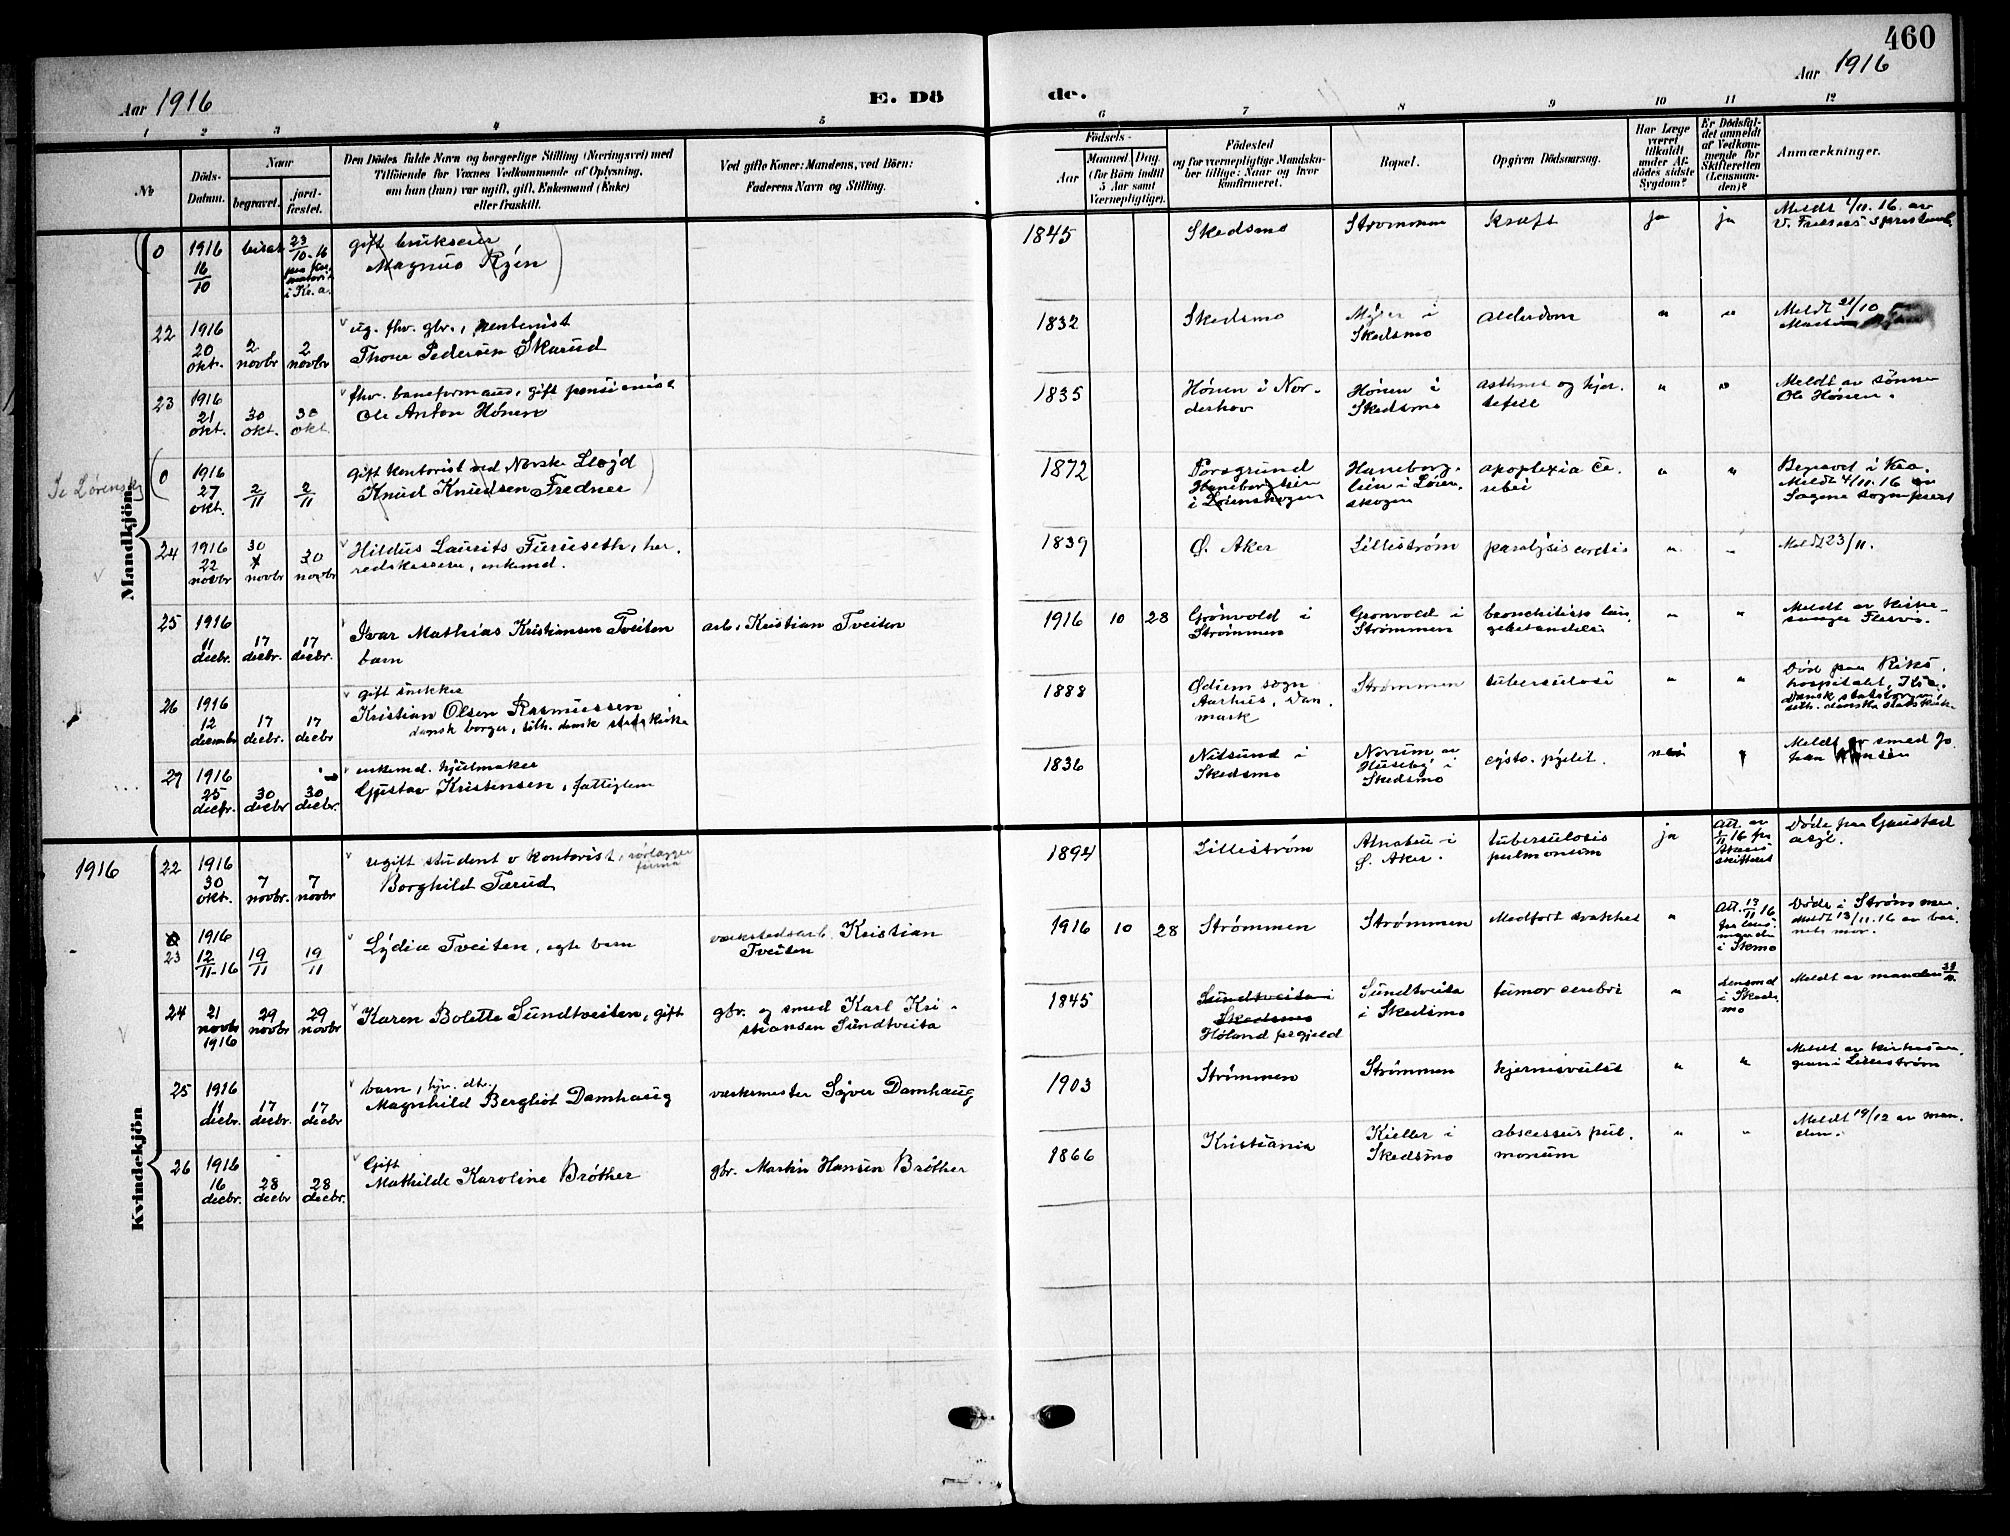 460
Aar 1916
E. Dö
de.
Aar 1916
1 2 3 4 5
6 7 8 9 10 11 12
No
Döds-
Datum.
Naar
begravet.
jord-
fæstet.
Den Dödes fulde Navn og borgerlige Stilling (Næringsvei) med
Tilföiende for Voxnes Vedkommende af Oplysning,
om han (hun) var ugift, gift, Enkemand (Enke)
eller fraskilt.
Ved gifte Koner: Mandens, ved Börn:
Faderens Navn og Stilling.
Födsels-
Aar
Maaned. Dag.
(for Börn indtil
5 Aar samt
Værnepligtige).
Födested
og for værnepligtige Mandska-
ber tillige: Naar og hvor
konfirmeret.
Bopæl.
Opgiven Dödsaarsag.
Har Læge
været
tilkaldt
under Af-
dödes sidste
Sygdom?
Er Dödsfal-
det anmeldt
af Vedkom-
mende for
Skifteretten
(Lensman-
den)?
Anmærkninger.
Mandkjön.
0
1916
16/10
23/10-16
i Kr.a.
gift
Magnus
1845
Skedsmo
Strømmen
kræft
ja
ja
22
1916
20
okt.
2
novbr
2
novbr
ug. fhv. gbr., rentenist
Thone Pedersen Skarud
1832
Skedsmo
Skedsmo
alderdom
"
"
Meldt 21/10
23
1916
21
okt.
30
okt.
30
okt.
fhv. baneformand, gift pensionist
Ole Anton Hønen
1835
Hønen i Nor-
derhov
Hønen i
Skedsmo
asthma og hjer-
tefeil
"
"
Meldt av sønnen
Ole Hønen.
Se Lørenskog
0
1916
27
okt.
2/11
2/11
gift kontorist ved Norske Lloyd
Knud Knudsen Fredner
1872
Porsgrund
Haneborglien
i Lørenskogen
Haneborg-
lien i Løren-
skogen
apoplexia ce-
rebri
"
"
Begravet i Kra.
Meldt 4/11.16 av
Sagene sogneprest
24
1916
22
novbr
30
novbr
30
novbr
Hildus Laurits Furuseth, her-
redskasserer, enkemd.
1839
Ø. Aker
Lillestrøm
paralysis cordis
"
"
Meldt 23/11.
25
1916
11
decbr.
17
decbr.
17
decbr.
Ivar Mathias Kristiansen Tveiten
barn
arb. Kristian Tveiten
1916 10 28
Grønvold i
Strømmen
Grønvold i
Strømmen
"
"
Meldt av kirke-
sanger
26
1916
12
17
decbr.
17
decbr
gift snekker
Kristian Olsen Rasmussen
dansk borger, tilh. dansk statskirke
1888
Ødum sogn
Aarhus, Dan-
mark
Strømmen
tuberculose
"
"
Død paa Riks-
hospitalet, Kria.
Dansk statsborger
tilh. danske statskirke
27
1916
25
decbr.
30
decbr
30
decbr.
enkemd. hjulmaker
Gustav Kristensen, fattiglem
1836
Nitsund i
Skedsmo
Norum av
Huseby i
Skedsmo
cysto-pyelit.
nei
"
Meldt av smed Jo-
han
Kvindekjön
1916
22
1916
30
okt.
7
novbr.
7
novbr
ugift student o kontorist, rørlægger
firma
Borghild Tærud
1894
Lillestrøm
Alnabru i
Ø. Aker.
tuberculosis
pulmonum
ja
Død paa Gaustad
asyl.
23
1916
12/11-16
19/11
19/11
Lydia Tveiten, egte barn
verkstedsarb. Kristian
Tveiten
1916 10 28
Strømmen
Strømmen
Medfødt svakhet
"
Att. 13/11 16
i Skmo
Døde i Strømmen.
Meldt 13/11.16 av bar-
nets mor.
24
21
novbr
1916
29
novbr
29
novbr
Karen Bolette Sundtveiten, gift
gbr. og smed Karl Kri-
stiansen Sundtveita
1845
Sundtveita i
Skedsmo
Høland prgjeld
Sundtveita
i Skedsmo
tumor cerebri
"
Lensmd
i Skeds-
mo
Meldt av manden
25
1916
11
decbr.
17
decbr.
17
decbr
barn, hjv. dtr.
Magnhild Bergliot Damhaug
verksmester Syver Damhaug
1903
Strømmen
Strømmen
"
"
Meldt av kirkesan-
geren i Lillestrøm
26
1916
16
decbr.
28
decbr
28
decbr.
Gift
Mathilde Karoline Brøther
gbr. Martin Hansen Brøther
1866
Kristiania
Kjeller i
Skedsmo
abscessus pul-
monum
"
"
Meldt 19/12 av man-
den.